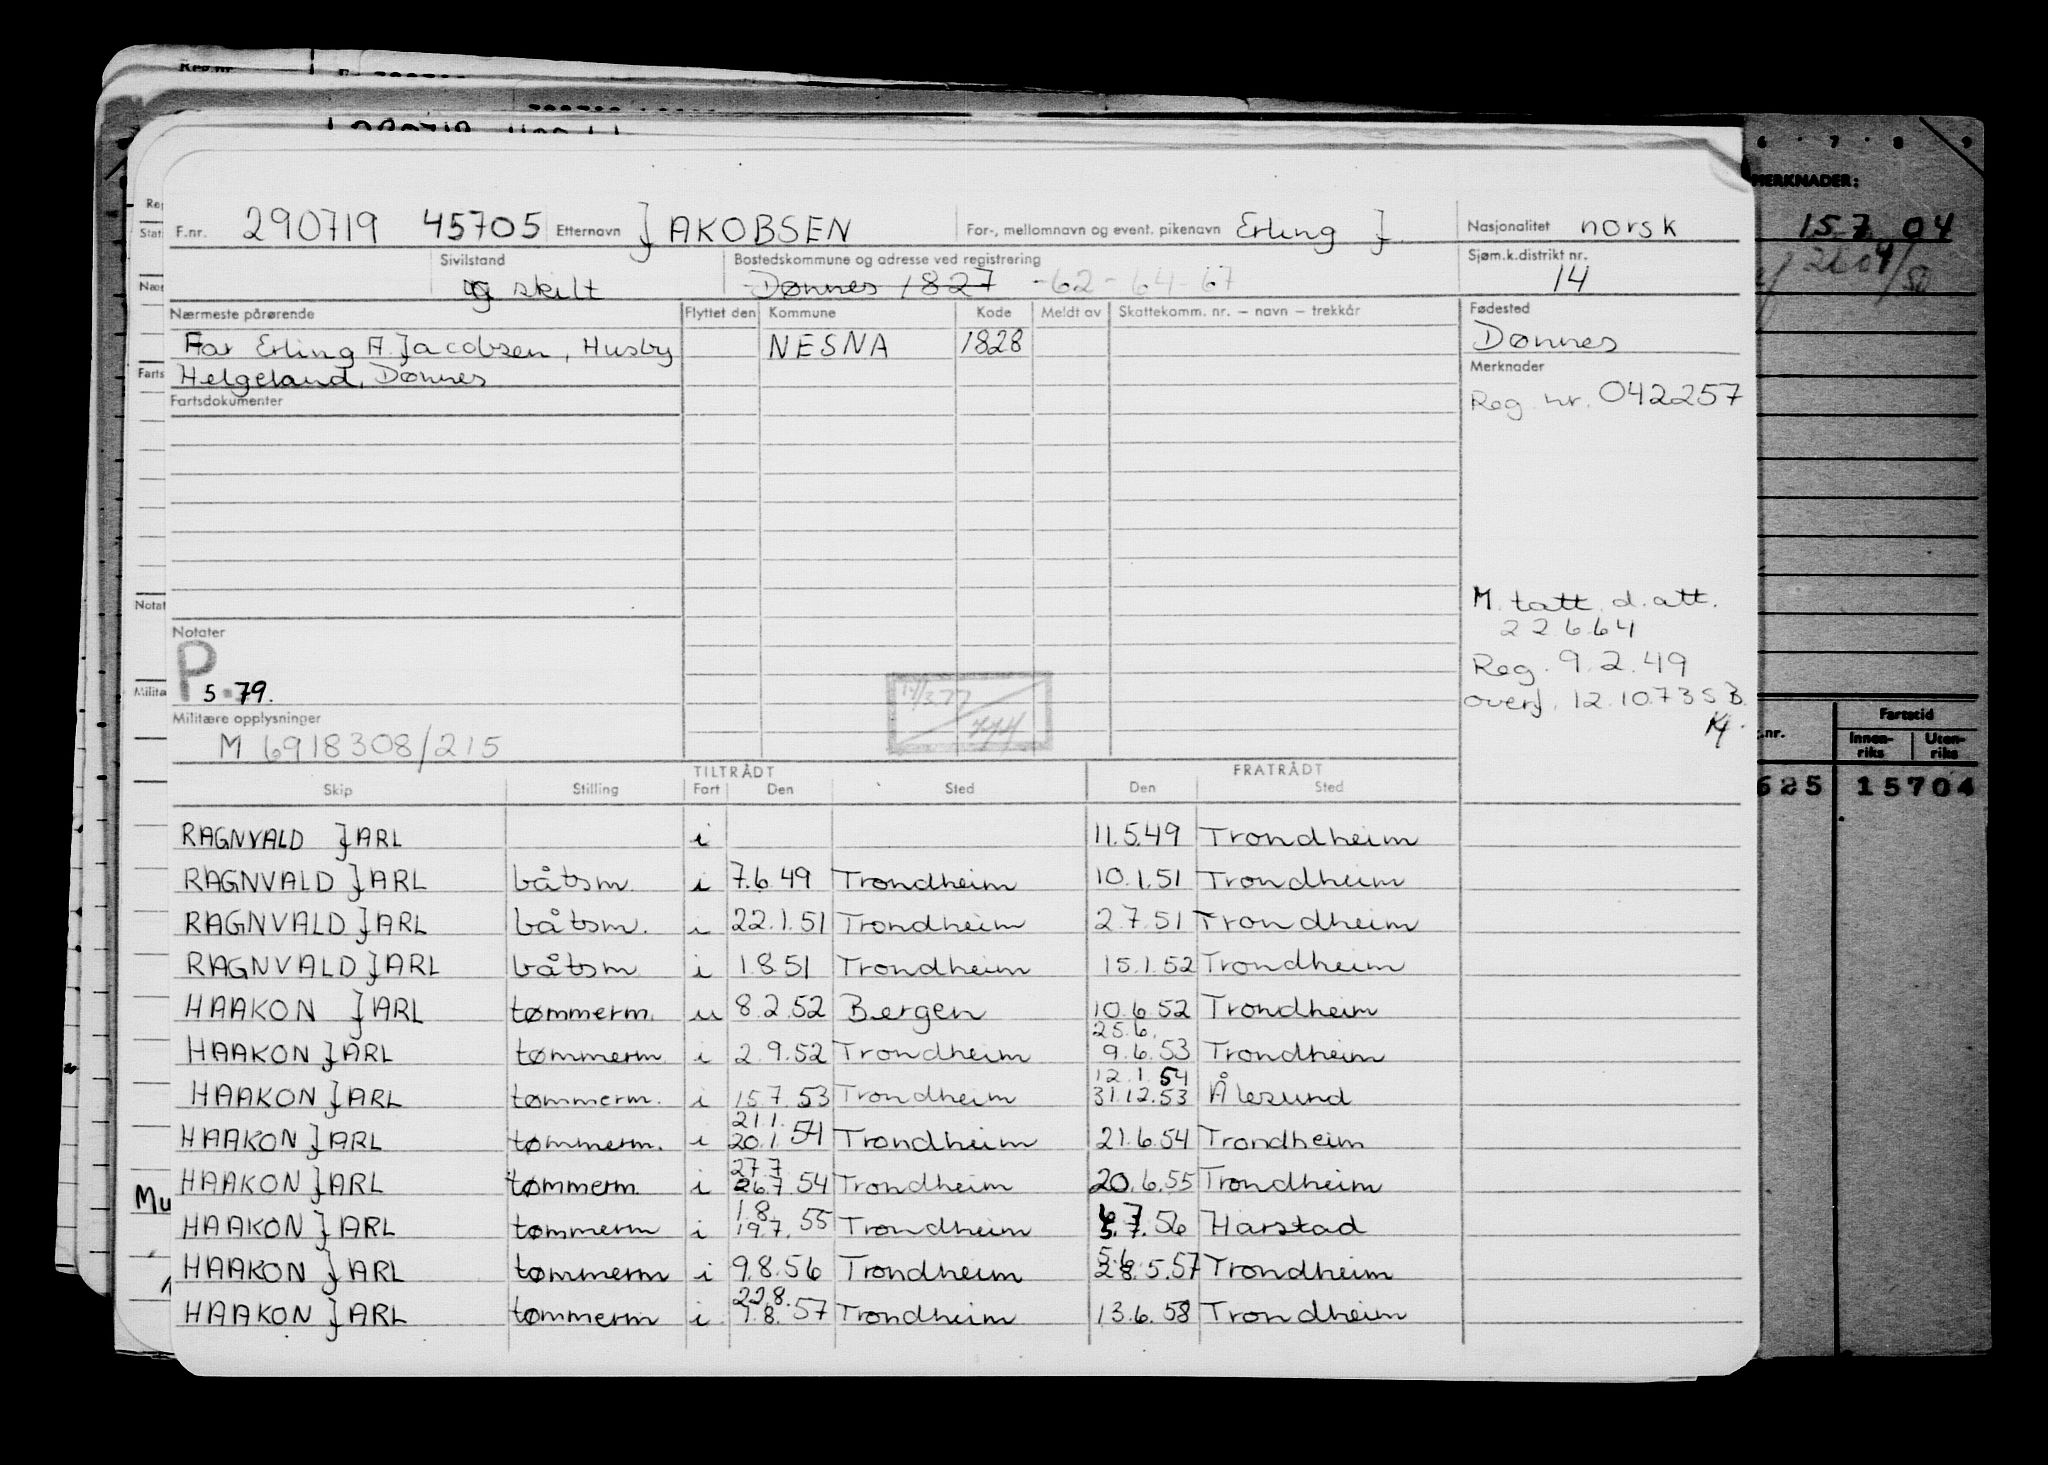 Reg.nr.
6 · 7 · 8 9
MERKNADER:
15.7.04
F.nr. 290719 45705 Etternavn JAKOBSEN For-, mellomnavn og event. pikenavn Erling J. Nasjonalitet norsk
Sivilstand Bostedskommune og adresse ved registrering Sjøm.k.distrikt nr.
skilt Dønnes 1827 -62-64-67 14
Nærmeste pårørende Flyttet den Kommune Kode Meldt av Skattekomm. nr. – navn – trekkår Fødested
Far Erling A. Jacobsen, Husby NESNA 1828 Dønnes
Helgeland, Dønnes Merknader
Fartsdokumenter Reg nr. 042257
M. tatt d. att.
22.6.64
Notater
P Reg. 9.2.49
5.79. overf. 12.10.73 SB
Militære opplysninger
M 6918308/215
774
Fartstid
Innen-riks Uten-riks
625 15704
TILTRÅDT FRATRÅDT
Skip Stilling Fart Den Sted Den Sted
RAGNVALD JARL i 11.5.49 Trondheim
RAGNVALD JARL båtsm. i 7.6.49 Trondheim 10.1.51 Trondheim
RAGNVALD JARL båtsm. i 22.1.51 Trondheim 2.7.51 Trondheim
RAGNVALD JARL båtsm i 1.8.51 Trondheim 15.1.52 Trondheim
HAAKON JARL tømmerm. u 8.2.52 Bergen 10.6.52 Trondheim
25.6.
HAAKON JARL tømmerm i 2.9.52 Trondheim 9.6.53 Trondheim
12.1.54
HAAKON JARL tømmerm. i 15.7.53 Trondheim 31.12.53 Ålesund
21.1.
HAAKON JARL tømmerm. i 20.1.54 Trondheim 21.6.54 Trondheim
27.7
HAAKON JARL tømmerm. i 26.7 54 Trondheim 20.6.55 Trondheim
1.8. 6 7
HAAKON JARL tømmerm i 19.7. 55 Trondheim 5.7.56 Harstad
5.6.
HAAKON JARL tømmerm i 9.8.56 Trondheim 28.5.57 Trondheim
22.8.
HAAKON JARL tømmerm i 1.8. 57 Trondheim 13.6.58 Trondheim